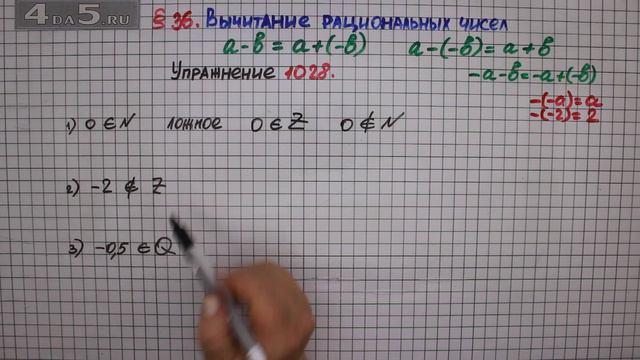 4DA5.RU
§ 36. Вычитание рациональных чисел
a-в = a+(-в) a-(-в) = a+в
Упражнение 1028. -a-в=-a+(-в)
-(-a)=a
-(-2)=2
1) 0 ∈ N ложное 0 ∈ Z 0 ∉ N
2) -2 ∉ Z
3) -0,5 ∈ Q